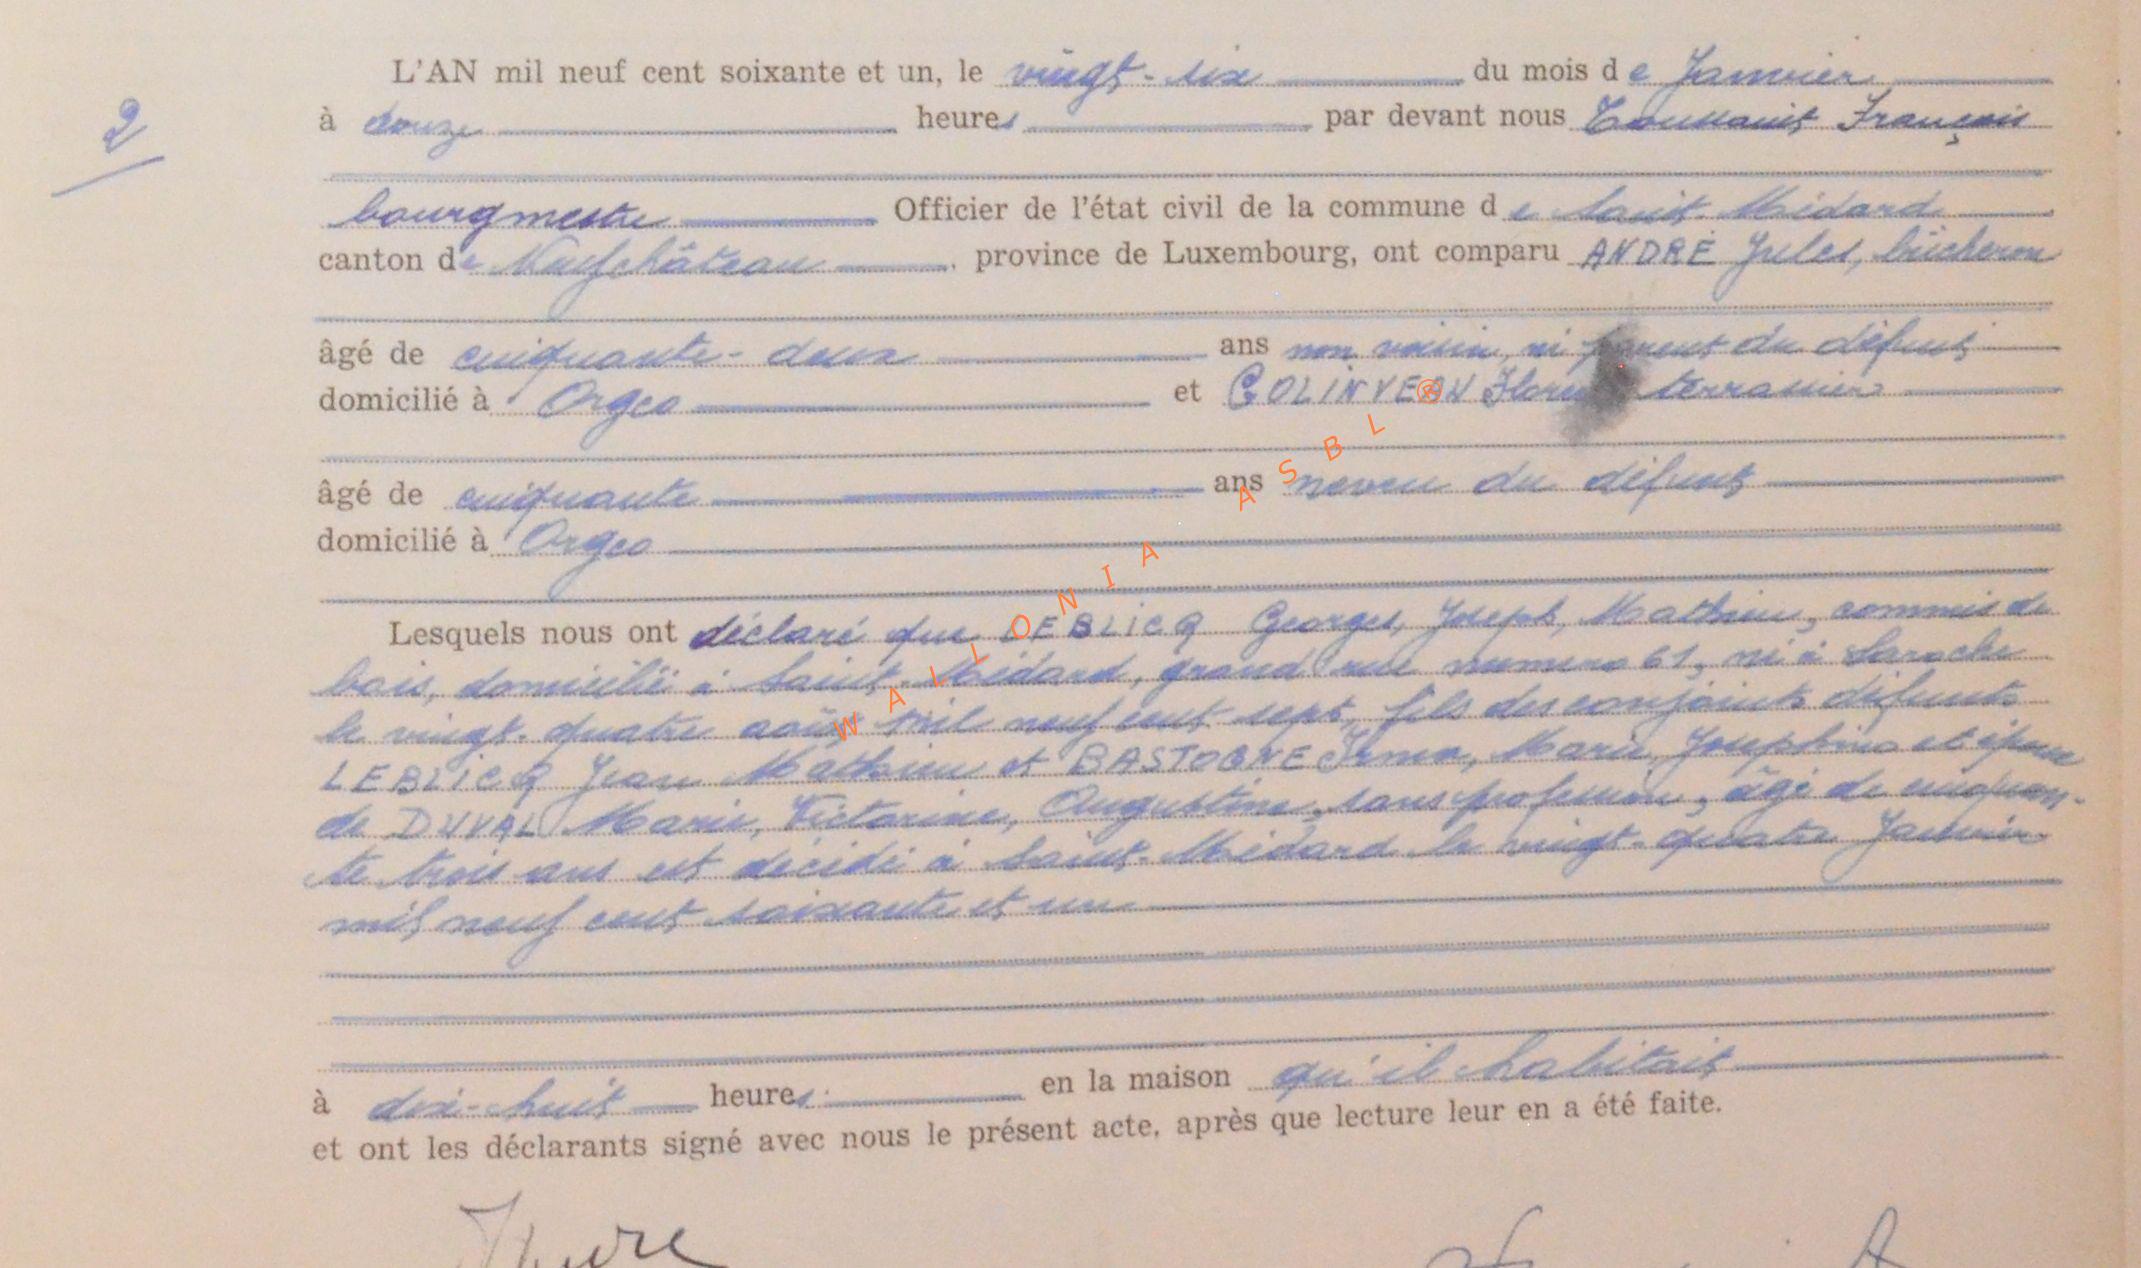 2
L'AN mil neuf cent soixante et un, le vingt-six du mois de Janvier
à douze heures par devant nous Toussaint François
bourgmestre Officier de l'état civil de la commune de Saint-Médard
canton de Neufchâteau, province de Luxembourg, ont comparu ANDRÉ Jules, bûcheron
âgé de cinquante-deux ans non voisin, ni parent du défunt
domicilié à Orgeo et COLINVEAU terrassier
âgé de cinquante ans neveu du défunt
domicilié à Orgeo
Lesquels nous ont déclaré que LEBLICQ Georges, Joseph, Mathieu, commis de
bois, domicilié à Saint-Médard, grand'rue numero 61, né à Laroche
le vingt-quatre août mil neuf cent sept, fils des conjoints défunts
LEBLICQ Jean Mathieu et BASTOGNE Irma, Marie, Joséphine et époux
de DUVAL Marie, Victorine, Augustine, sans profession, âgé de cinquan-
te trois ans est décédé à Saint-Médard le vingt-quatre Janvier
mil neuf cent soixante et un
à dix-huit heures en la maison qu'il habitait
et ont les déclarants signé avec nous le présent acte, après que lecture leur en a été faite.
WALLONIA ASBL ®